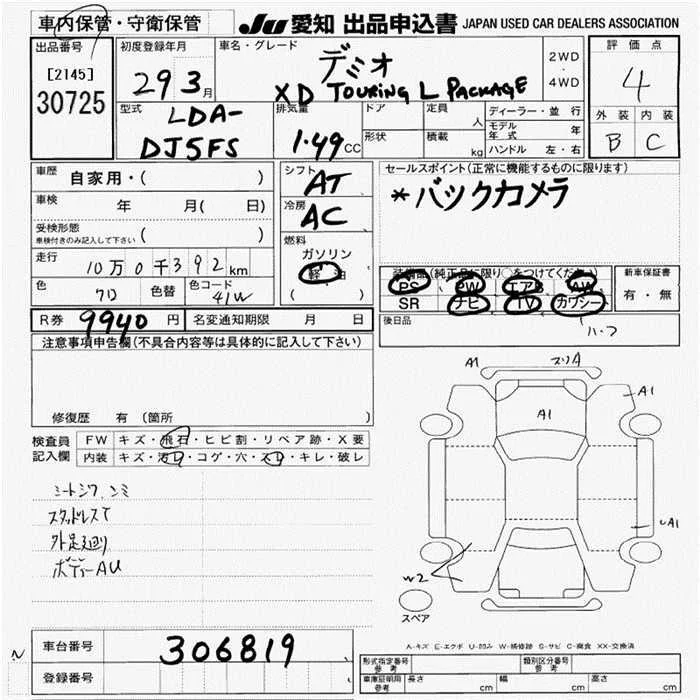 車内保管・守衛保管
JU 愛知 出品申込書 JAPAN USED CAR DEALERS ASSOCIATION
出品番号
[2145]
30725
初度登録年月
29 3月
車名・グレード
デミオ
XD TOURING L PACKAGE
2WD
・
4WD
評価点
4
外装 内装
B C
型式
LDA-
DJ5FS
排気量
1.49 CC
ドア
形状
定員 人
積載 kg
ディーラー・並行
モデル年式 年
ハンドル 左・右
車歴
自家用・( )
車検
年 月( 日)
受検形態
車検付きのみ記入して下さい ( )
走行
10万0千392km
色
色替
色コード
41W
シフト
AT
冷房
AC
燃料
ガソリン
軽油
( )
セールスポイント(正常に機能するものに限ります)
*バックカメラ
装備品(純正品に限り○をつけてください)
PS PW エアB AW
SR ナビ TV カワシー
新車保証書
有・無
後日品
R券 9940 円
名変通知期限 月 日
注意事項申告欄(不具合内容等は具体的に記入して下さい)
修復歴 有 (箇所 )
検査員
記入欄
FW キズ・飛石・ヒビ割・リペア跡・X要
内装 キズ・汚レ・コゲ・穴・スレ・キレ・破レ
シートシワ、シミ
スタッドレスT
外足廻り
ボディーAU
A1
スリA
A1
A1
A1
W2
スペア
A-キズ E-エクボ U-凹み W-補修跡 S-サビ C-腐食 XX-交換済
車台番号
306819
登録番号
形式指定番号
参考
類別区分番号
参考
車庫証明用
参考
長さ cm
幅 cm
高さ cm